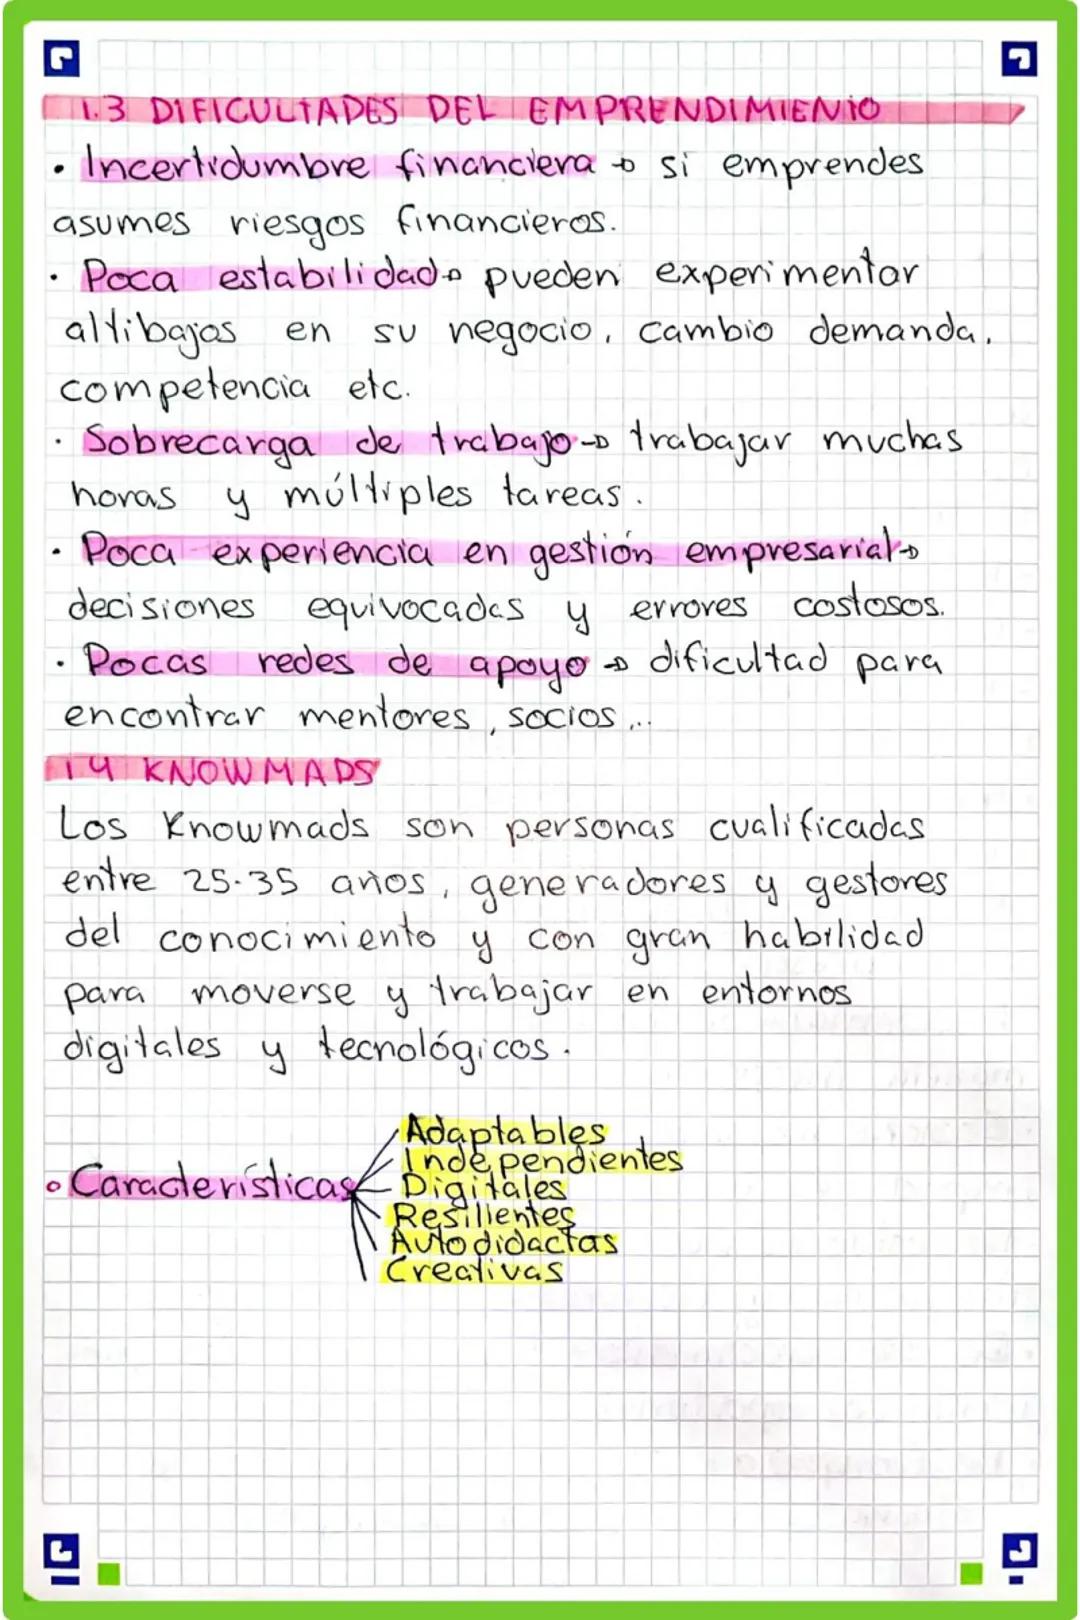 1.3 DIFICULTADES DEL EMPRENDIMIENTO
• Incertidumbre financiera → si emprendes
asumes riesgos financieros.
· Poca estabilidad→ pueden experimentar
altibajos en su negocio, cambio demanda,
competencia etc.
· Sobrecarga de trabajo→ trabajar muchas
horas y múltiples tareas.
· Poca experiencia en gestión empresarial→
decisiones equivocadas y errores costosos.
· Pocas redes de apoyo → dificultad para
encontrar mentores, socios...
1.4 KNOWMADS
Los Knowmads son personas cualificadas
entre 25-35 años, generadores y gestores
del conocimiento y con gran habilidad
para moverse y trabajar en entornos
digitales y tecnológicos.
Adaptables
Independientes
• Características Digitales
Resilientes
Autodidactas
Creativas